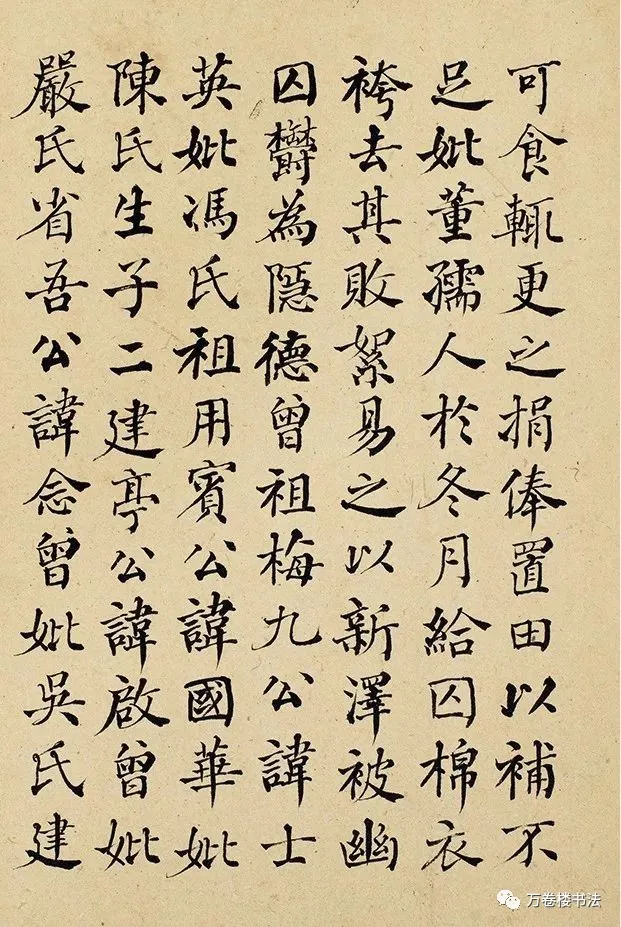 可食輒更之捐俸置田以補不
足妣董孺人於冬月給囚棉衣
袴去其敗絮易之以新澤被幽
囚欝為隱德曾祖梅九公諱士
英妣馮氏祖用賓公諱國華妣
陳氏生子二建亭公諱啟曾妣
嚴氏省吾公諱念曾妣吳氏建
万卷楼书法